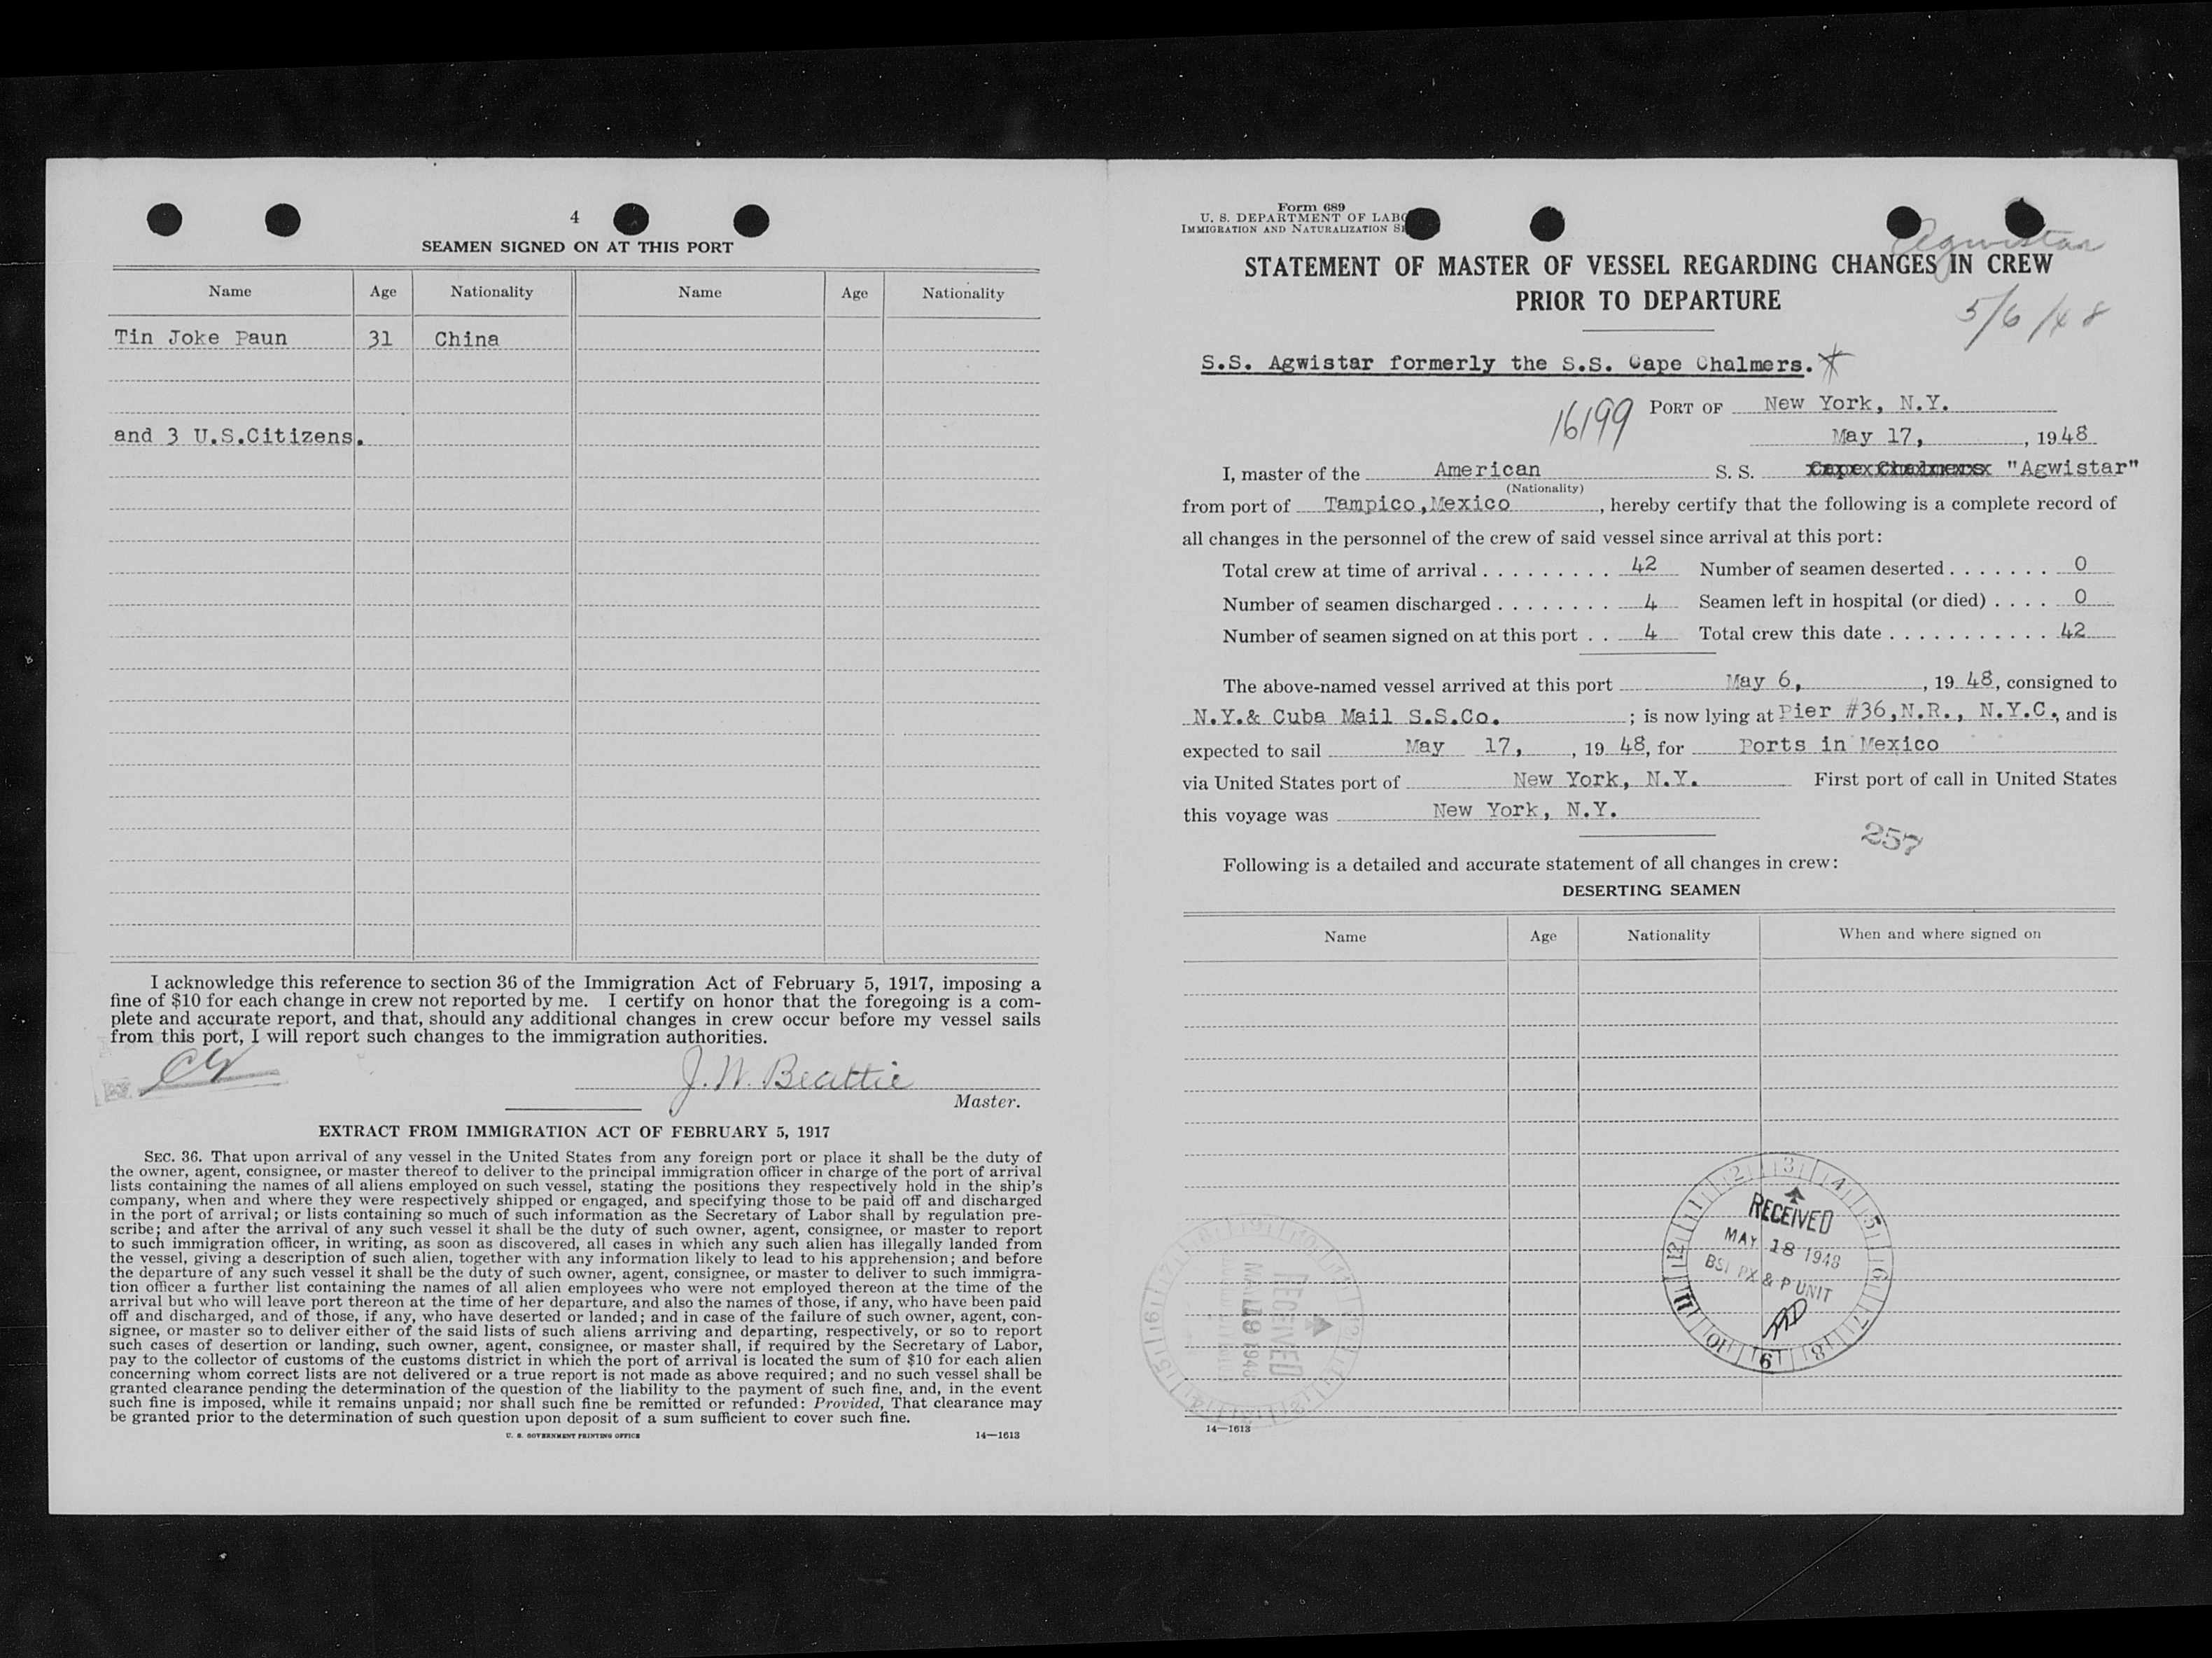 4
SEAMEN SIGNED ON AT THIS PORT
Name Age Nationality Name Age Nationality
Tin Joke Paun 31 China
and 3 U.S.Citizens.
I acknowledge this reference to section 36 of the Immigration Act of February 5, 1917, imposing a
fine of $10 for each change in crew not reported by me. I certify on honor that the foregoing is a com-
plete and accurate report, and that, should any additional changes in crew occur before my vessel sails
from this port, I will report such changes to the immigration authorities.
J. W. Beattie
Master.
EXTRACT FROM IMMIGRATION ACT OF FEBRUARY 5, 1917
SEC. 36. That upon arrival of any vessel in the United States from any foreign port or place it shall be the duty of
the owner, agent, consignee, or master thereof to deliver to the principal immigration officer in charge of the port of arrival
lists containing the names of all aliens employed on such vessel, stating the positions they respectively hold in the ship's
company, when and where they were respectively shipped or engaged, and specifying those to be paid off and discharged
in the port of arrival; or lists containing so much of such information as the Secretary of Labor shall by regulation pre-
scribe; and after the arrival of any such vessel it shall be the duty of such owner, agent, consignee, or master to report
to such immigration officer, in writing, as soon as discovered, all cases in which any such alien has illegally landed from
the vessel, giving a description of such alien, together with any information likely to lead to his apprehension; and before
the departure of any such vessel it shall be the duty of such owner, agent, consignee, or master to deliver to such immigra-
tion officer a further list containing the names of all alien employees who were not employed thereon at the time of the
arrival but who will leave port thereon at the time of her departure, and also the names of those, if any, who have been paid
off and discharged, and of those, if any, who have deserted or landed; and in case of the failure of such owner, agent, con-
signee, or master so to deliver either of the said lists of such aliens arriving and departing, respectively, or so to report
such cases of desertion or landing, such owner, agent, consignee, or master shall, if required by the Secretary of Labor,
pay to the collector of customs of the customs district in which the port of arrival is located the sum of $10 for each alien
concerning whom correct lists are not delivered or a true report is not made as above required; and no such vessel shall be
granted clearance pending the determination of the question of the liability to the payment of such fine, and, in the event
such fine is imposed, while it remains unpaid; nor shall such fine be remitted or refunded: Provided, That clearance may
be granted prior to the determination of such question upon deposit of a sum sufficient to cover such fine.
U. S. GOVERNMENT PRINTING OFFICE 14—1613
Form 689
U. S. DEPARTMENT OF LABO
IMMIGRATION AND NATURALIZATION S
Agwistar
STATEMENT OF MASTER OF VESSEL REGARDING CHANGES IN CREW
PRIOR TO DEPARTURE
5/6/48
S.S. Agwistar formerly the S.S. Cape Chalmers.
16199 PORT OF New York, N.Y.
May 17, , 1948
I, master of the American S. S. "Agwistar"
(Nationality)
from port of Tampico,Mexico , hereby certify that the following is a complete record of
all changes in the personnel of the crew of said vessel since arrival at this port:
Total crew at time of arrival . . . . . . . . . 42 Number of seamen deserted . . . . . . . 0
Number of seamen discharged . . . . . . . . 4 Seamen left in hospital (or died) . . . . 0
Number of seamen signed on at this port . . 4 Total crew this date . . . . . . . . . . . 42
The above-named vessel arrived at this port May 6, , 19 48, consigned to
N.Y.& Cuba Mail S.S.Co. ; is now lying at Pier #36,N.R., N.Y.C., and is
expected to sail May 17, , 19 48, for Ports in Mexico
via United States port of New York, N.Y. First port of call in United States
this voyage was New York, N.Y.
257
Following is a detailed and accurate statement of all changes in crew:
DESERTING SEAMEN
Name Age Nationality When and where signed on
1 2 3 4 5 6 7 8 9 10 11 12
RECEIVED
MAY 18 1948
BSI PX & P UNIT
RECEIVED
MAY 19 1948
14—1613